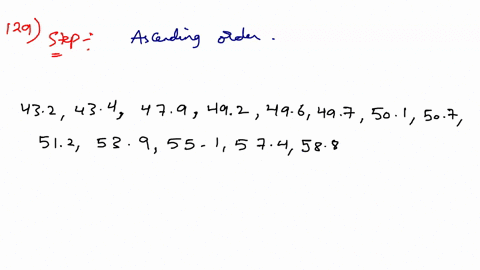 129) Step:- Ascending order.
43.2, 43.4, 47.9, 49.2, 49.6, 49.7, 50.1, 50.7,
51.2, 53.9, 55.1, 57.4, 58.8